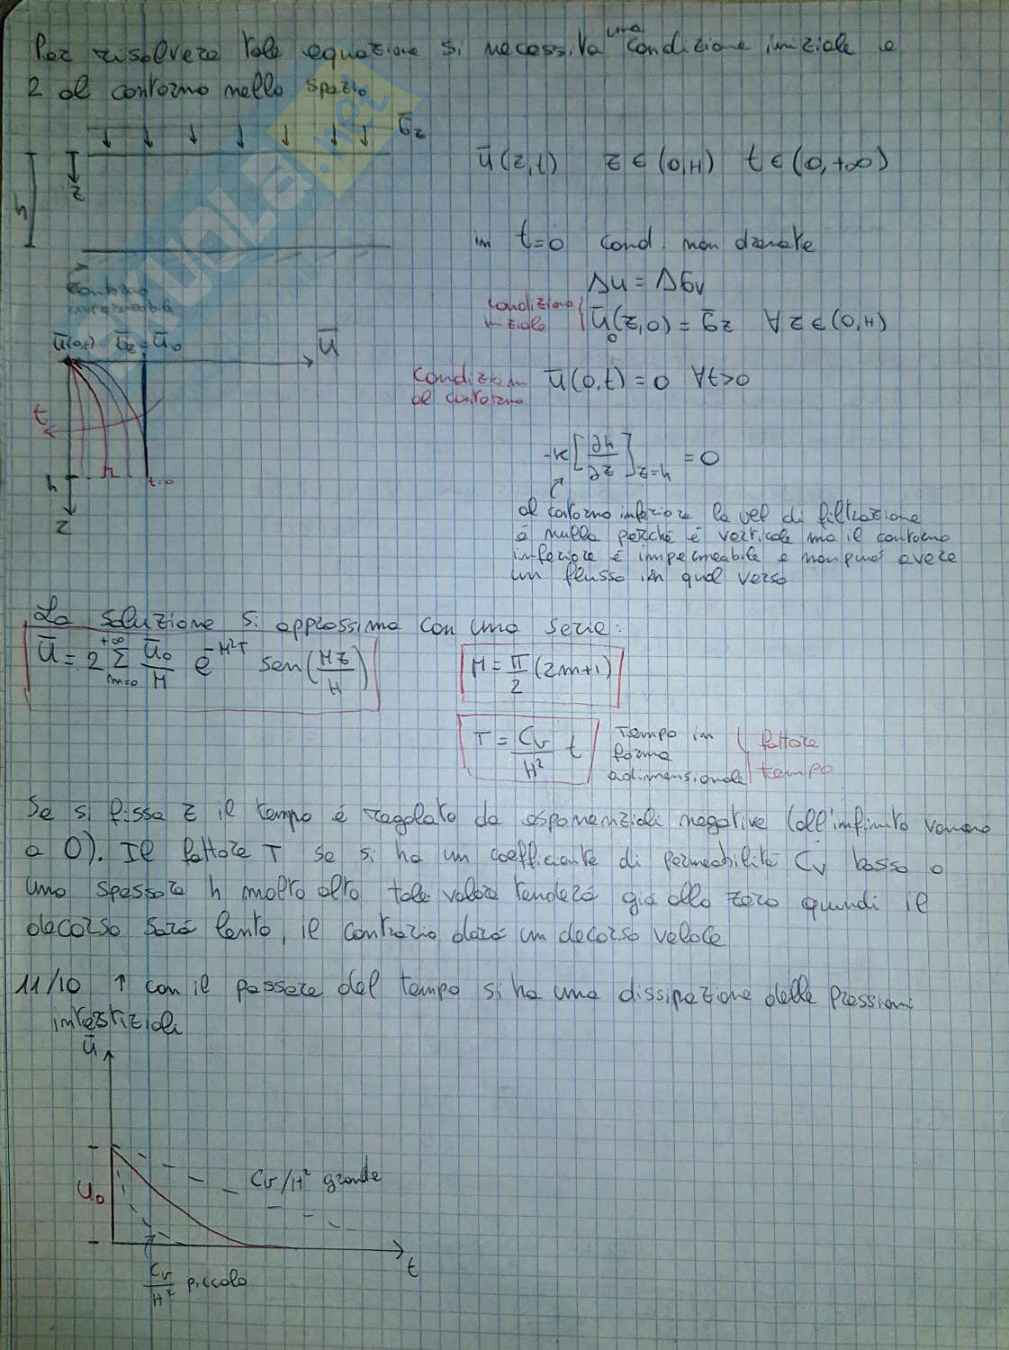 Per risolvere tale equazione si necessita una condizione iniziale e
2 al contorno nello spazio
σ̄z
z
h
ū(z,t) z ∈ (0,H) t ∈ (0,+∞)
in t=0 cond. non drenate
Δu = Δσv
condizione
iniziale
ū(z,0) = σ̄z ∀ z ∈ (0,H)
0
contorno
impermeabile
ū(0,t) σ̄z = ū0
ū
condizioni
al contorno
ū(0,t) = 0 ∀t>0
t
h
t=0
z
-k[∂h/∂z]z=h = 0
al contorno inferiore la vel di filtrazione
è nulla perché è verticale ma il contorno
inferiore è impermeabile e non può avere
un flusso in quel verso
La soluzione si approssima con una serie:
ū = 2 Σ(m=0, +∞) ū0/M e^(-M²T) sen(Mz/H)
M = π/2 (2m+1)
T = Cv/H² t
Tempo in
forma
adimensionale
fattore
tempo
Se si fissa z il tempo è regolato da esponenziali negative (all'infinito vanno
a 0). Il fattore T se si ha un coefficiente di permeabilità Cv basso o
uno spessore h molto alto tale valore tenderà già allo zero quindi il
decorso sarà lento, il contrario darà un decorso veloce
11/10 ↑ con il passare del tempo si ha una dissipazione delle pressioni
interstiziali
ū
Cv/H² grande
u0
t
Cv/H² piccolo
SKUOLA.net